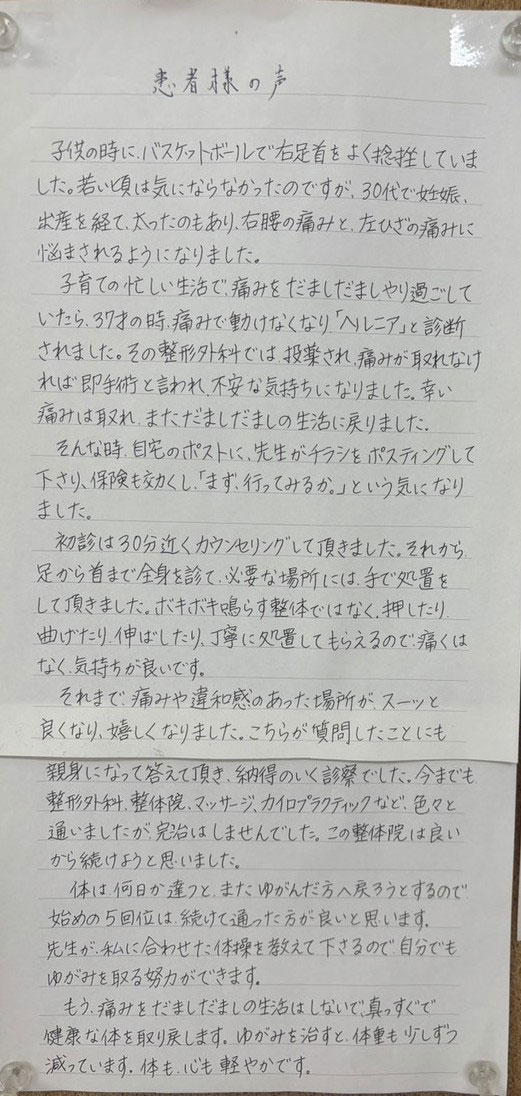 患者様の声
子供の時に、バスケットボールで右足首をよく捻挫していま
した。若い頃は気にならなかったのですが、30代で妊娠、
出産を経て、太ったのもあり、右腰の痛みと、左ひざの痛みに
悩まされるようになりました。
子育ての忙しい生活で、痛みをだましだましやり過ごして
いたら、37才の時、痛みで動けなくなり、「ヘルニア」と診断
されました。その整形外科では、投薬され、痛みが取れなけ
れば即手術と言われ、不安な気持ちになりました。幸い
痛みは取れ、まただましだましの生活に戻りました。
そんな時、自宅のポストに、先生がチラシをポスティングして
下さり、保険も効くし、「まず、行ってみるか。」という気になり
ました。
初診は30分近くカウンセリングして頂きました。それから、
足から首まで全身を診て、必要な場所には、手で処置を
して頂きました。ボキボキ鳴らす整体ではなく、押したり、
曲げたり、伸ばしたり、丁寧に処置してもらえるので、痛くは
なく、気持ちが良いです。
それまで、痛みや違和感のあった場所が、スーッと
良くなり、嬉しくなりました。こちらが質問したことにも
親身になって答えて頂き、納得のいく診察でした。今までも
整形外科、整体院、マッサージ、カイロプラクティックなど、色々と
通いましたが、完治はしませんでした。この整体院は良い
から続けようと思いました。
体は、何日か違つと、またゆがんだ方へ戻ろうとするので、
始めの5回位は、続けて通った方が良いと思います。
先生が、私に合わせた体操を教えて下さるので、自分でも
ゆがみを取る努力ができます。
もう、痛みをだましだましの生活はしないで、真っすぐで
健康な体を取り戻します。ゆがみを治すと、体重も少しずつ
減っています。体も、心も軽やかです。